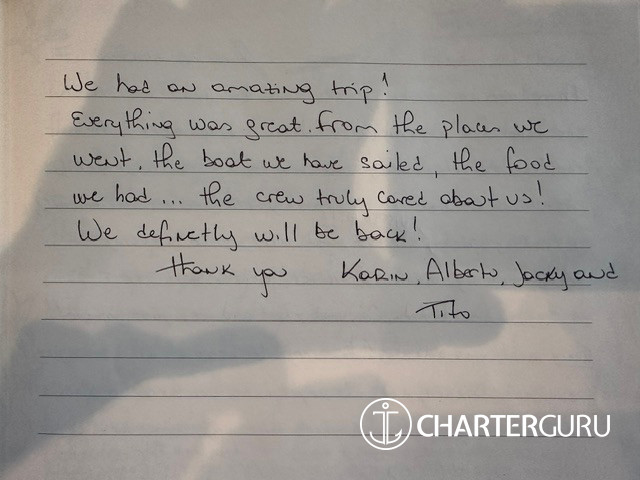 We had an amazing trip!
Everything was great. from the places we
went, the boat we have sailed, the food
we had... the crew truly cared about us!
We definetly will be back!
Thank you Karin, Alberto, Jacky and
Tito
CHARTERGURU